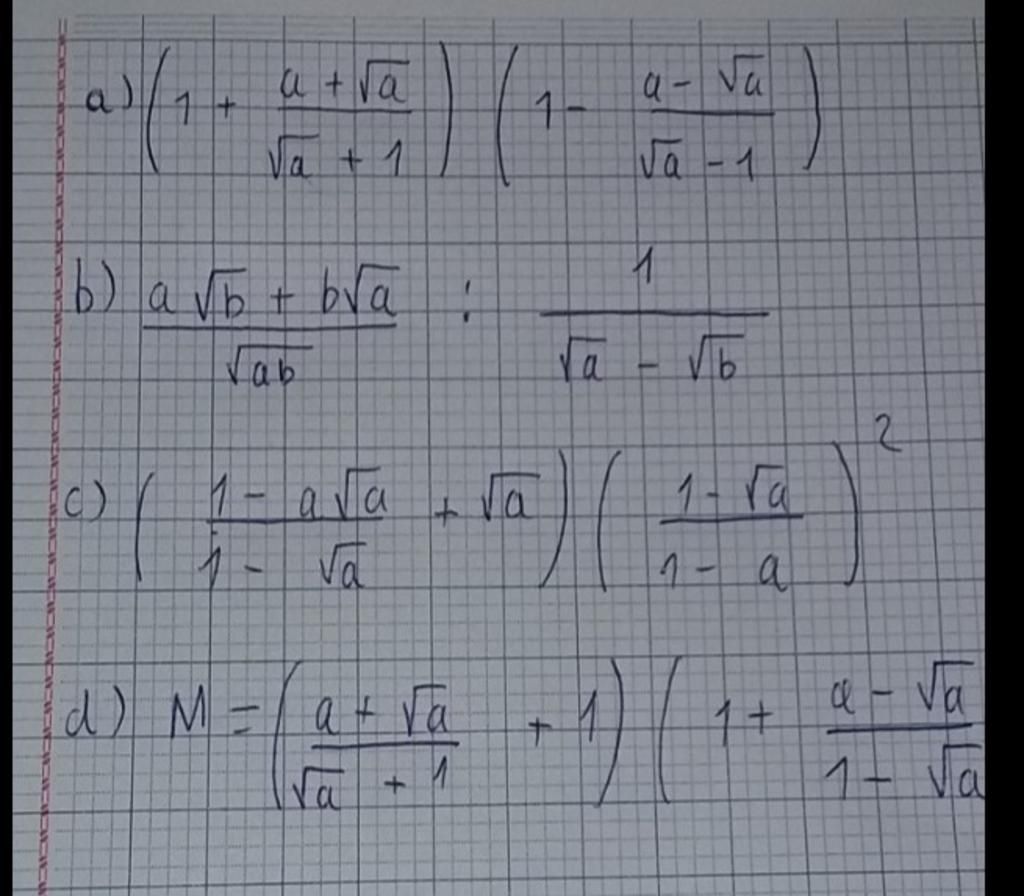 a) (1 + (a + √a)/(√a + 1)) (1 - (a - √a)/(√a - 1))
b) (a√b + b√a)/√ab : 1/(√a - √b)
c) ((1 - a√a)/(1 - √a) + √a) ((1 - √a)/(1 - a))²
d) M = ((a + √a)/(√a + 1) + 1) (1 + (a - √a)/(1 - √a)